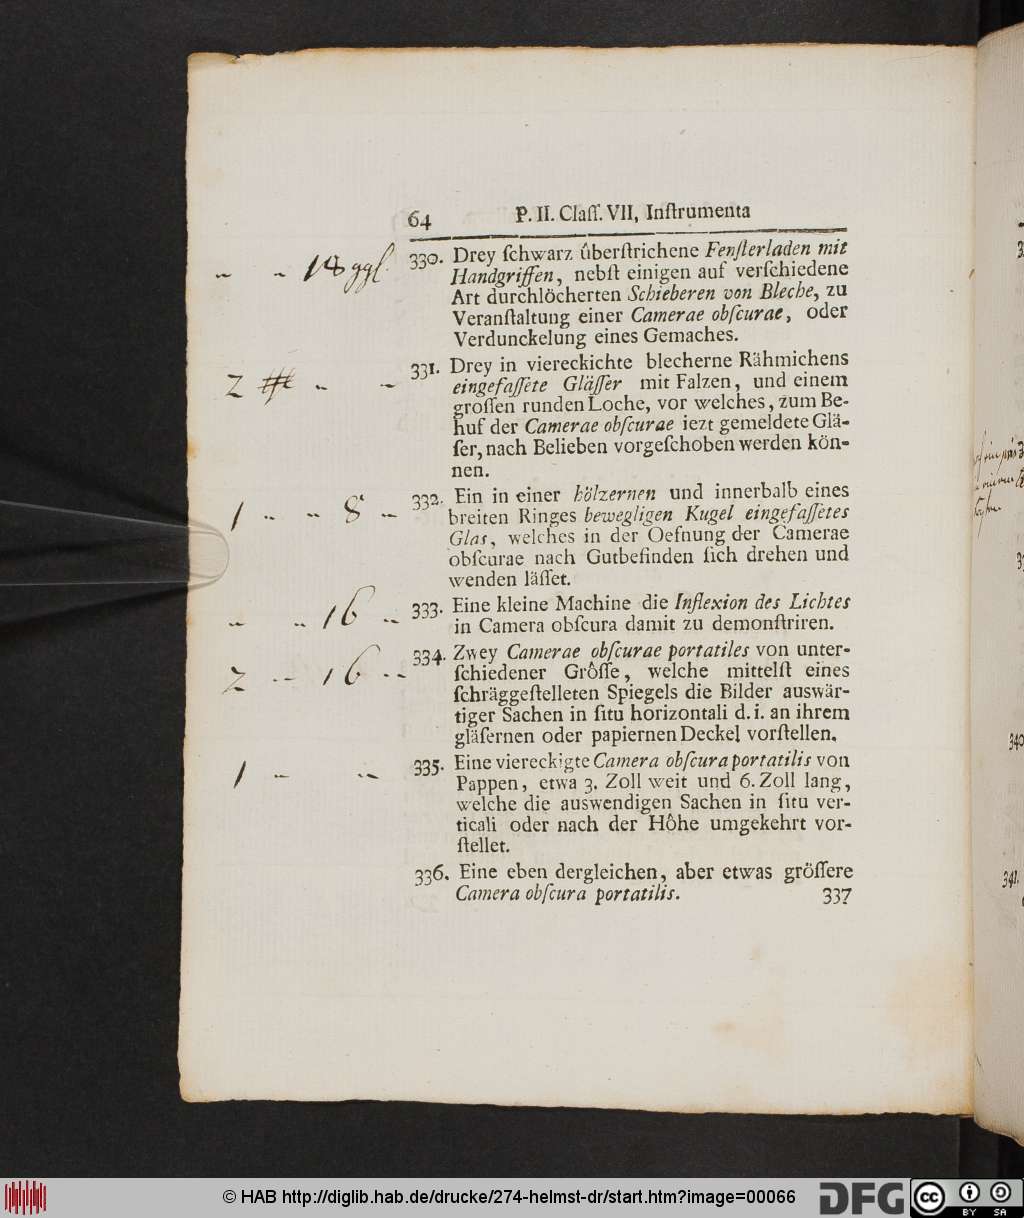 64 P. II. Claſſ. VII, Inſtrumenta
- - 18 ggl. 330. Drey ſchwarz ůberſtrichene Fenſterladen mit
Handgriffen, nebſt einigen auf verſchiedene
Art durchlöcherten Schieberen von Bleche, zu
Veranſtaltung einer Camerae obſcurae, oder
Verdunckelung eines Gemaches.
2 - - 331. Drey in viereckichte blecherne Rähmichens
eingefaſſete Gläſſer mit Falzen, und einem
groſſen runden Loche, vor welches, zum Be-
huf der Camerae obſcurae iezt gemeldete Glä-
ſer, nach Belieben vorgeſchoben werden kön-
nen.
1 - - 8 - 332. Ein in einer hölzernen und innerhalb eines
breiten Ringes bewegligen Kugel eingefaſſetes
Glas, welches in der Oefnung der Camerae
obſcurae nach Gutbefinden ſich drehen und
wenden läſſet.
- - 16 - 333. Eine kleine Machine die Inflexion des Lichtes
in Camera obſcura damit zu demonſtriren.
2 - 16 - 334. Zwey Camerae obſcurae portatiles von unter-
ſchiedener Grôſſe, welche mittelſt eines
ſchräggeſtelleten Spiegels die Bilder auswär-
tiger Sachen in ſitu horizontali d. i. an ihrem
gläſernen oder papiernen Deckel vorſtellen.
1 - - 335. Eine viereckigte Camera obſcura portatilis von
Pappen, etwa 3. Zoll weit und 6. Zoll lang,
welche die auswendigen Sachen in ſitu ver-
ticali oder nach der Hôhe umgekehrt vor-
ſtellet.
336. Eine eben dergleichen, aber etwas gröſſere
Camera obſcura portatilis. 337
340
341.
© HAB http://diglib.hab.de/drucke/274-helmst-dr/start.htm?image=00066
DFG cc BY SA